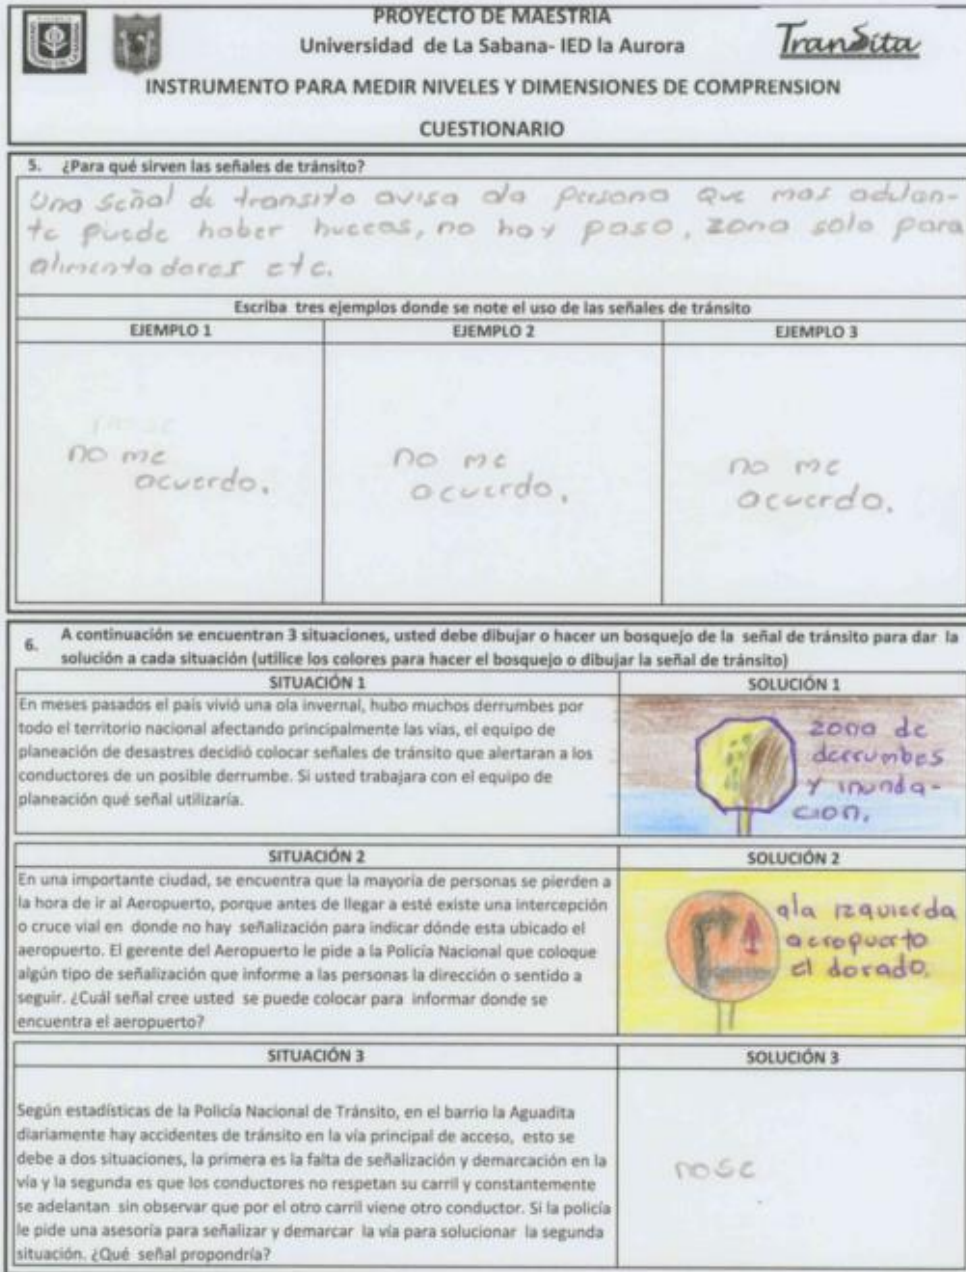 PROYECTO DE MAESTRIA
Universidad de La Sabana- IED la Aurora
TranSita
INSTRUMENTO PARA MEDIR NIVELES Y DIMENSIONES DE COMPRENSION
CUESTIONARIO
5. ¿Para qué sirven las señales de tránsito?
Una señal de transito avisa ala persona que mas adelan-
te puede haber huecos, no hay paso, zona solo para
alimentadores etc.
Escriba tres ejemplos donde se note el uso de las señales de tránsito
EJEMPLO 1
EJEMPLO 2
EJEMPLO 3
no me
acuerdo.
no me
acuerdo.
no me
acuerdo.
6. A continuación se encuentran 3 situaciones, usted debe dibujar o hacer un bosquejo de la señal de tránsito para dar la
solución a cada situación (utilice los colores para hacer el bosquejo o dibujar la señal de tránsito)
SITUACIÓN 1
SOLUCIÓN 1
En meses pasados el país vivió una ola invernal, hubo muchos derrumbes por
todo el territorio nacional afectando principalmente las vías, el equipo de
planeación de desastres decidió colocar señales de tránsito que alertaran a los
conductores de un posible derrumbe. Si usted trabajara con el equipo de
planeación qué señal utilizaría.
zona de
derrumbes
y inunda-
cion.
SITUACIÓN 2
SOLUCIÓN 2
En una importante ciudad, se encuentra que la mayoría de personas se pierden a
la hora de ir al Aeropuerto, porque antes de llegar a esté existe una intercepción
o cruce vial en donde no hay señalización para indicar dónde esta ubicado el
aeropuerto. El gerente del Aeropuerto le pide a la Policía Nacional que coloque
algún tipo de señalización que informe a las personas la dirección o sentido a
seguir. ¿Cuál señal cree usted se puede colocar para informar donde se
encuentra el aeropuerto?
ala izquierda
aeropuerto
el dorado.
SITUACIÓN 3
SOLUCIÓN 3
Según estadísticas de la Policía Nacional de Tránsito, en el barrio la Aguadita
diariamente hay accidentes de tránsito en la vía principal de acceso, esto se
debe a dos situaciones, la primera es la falta de señalización y demarcación en la
vía y la segunda es que los conductores no respetan su carril y constantemente
se adelantan sin observar que por el otro carril viene otro conductor. Si la policía
le pide una asesoría para señalizar y demarcar la vía para solucionar la segunda
situación. ¿Qué señal propondría?
nose